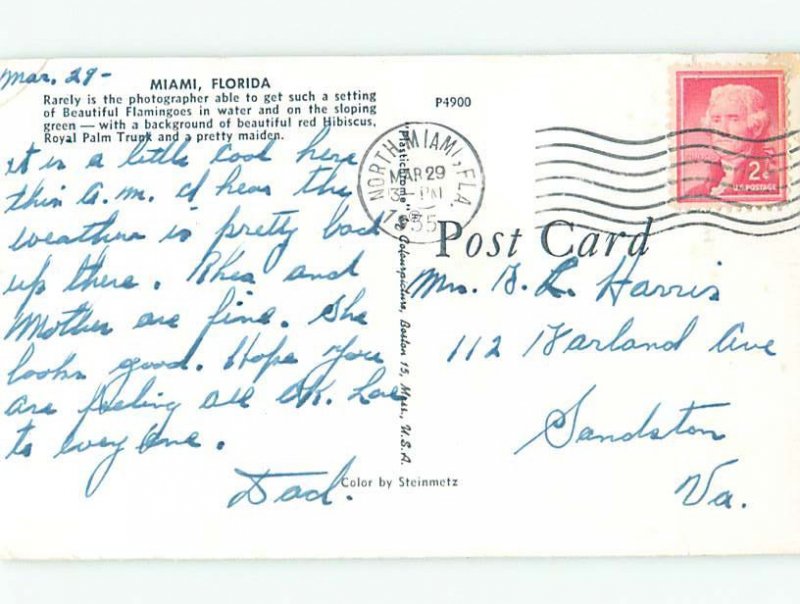 Mar. 29-
MIAMI, FLORIDA
Rarely is the photographer able to get such a setting
of Beautiful Flamingoes in water and on the sloping
green — with a background of beautiful red Hibiscus,
Royal Palm Trunk and a pretty maiden.
P4900
it is a little cool here
this a.m. I hear the
weather is pretty bad
up there. Rhea and
Mother are fine. She
looks good. Hope you
are feeling all OK. Love
to everyone.
Dad.
Color by Steinmetz
"Plastichrome" by Colourpicture, Boston 15, Mass., U.S.A.
NORTH MIAMI, FLA.
MAR 29
PM
2¢
U.S. POSTAGE
Post Card
Mrs. L. Harris
112 Garland Ave
Sandston
Va.